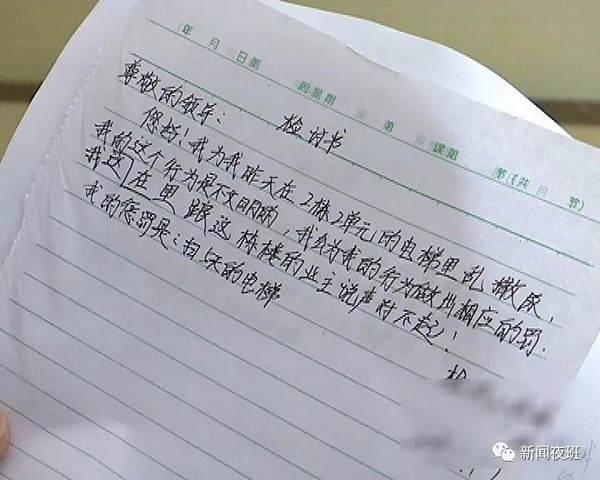 年 月 日第 周星期 第 课第 节(共 节)
检讨书
尊敬的领导：
您好！我为我昨天在2栋2单元的电梯里乱撒尿，
我的这个行为是不文明的，我会为我的行为做出相应的罚.
我这在里跟这栋楼的业主说声对不起！
我的惩罚是：扫5天的电梯
检
新闻夜班